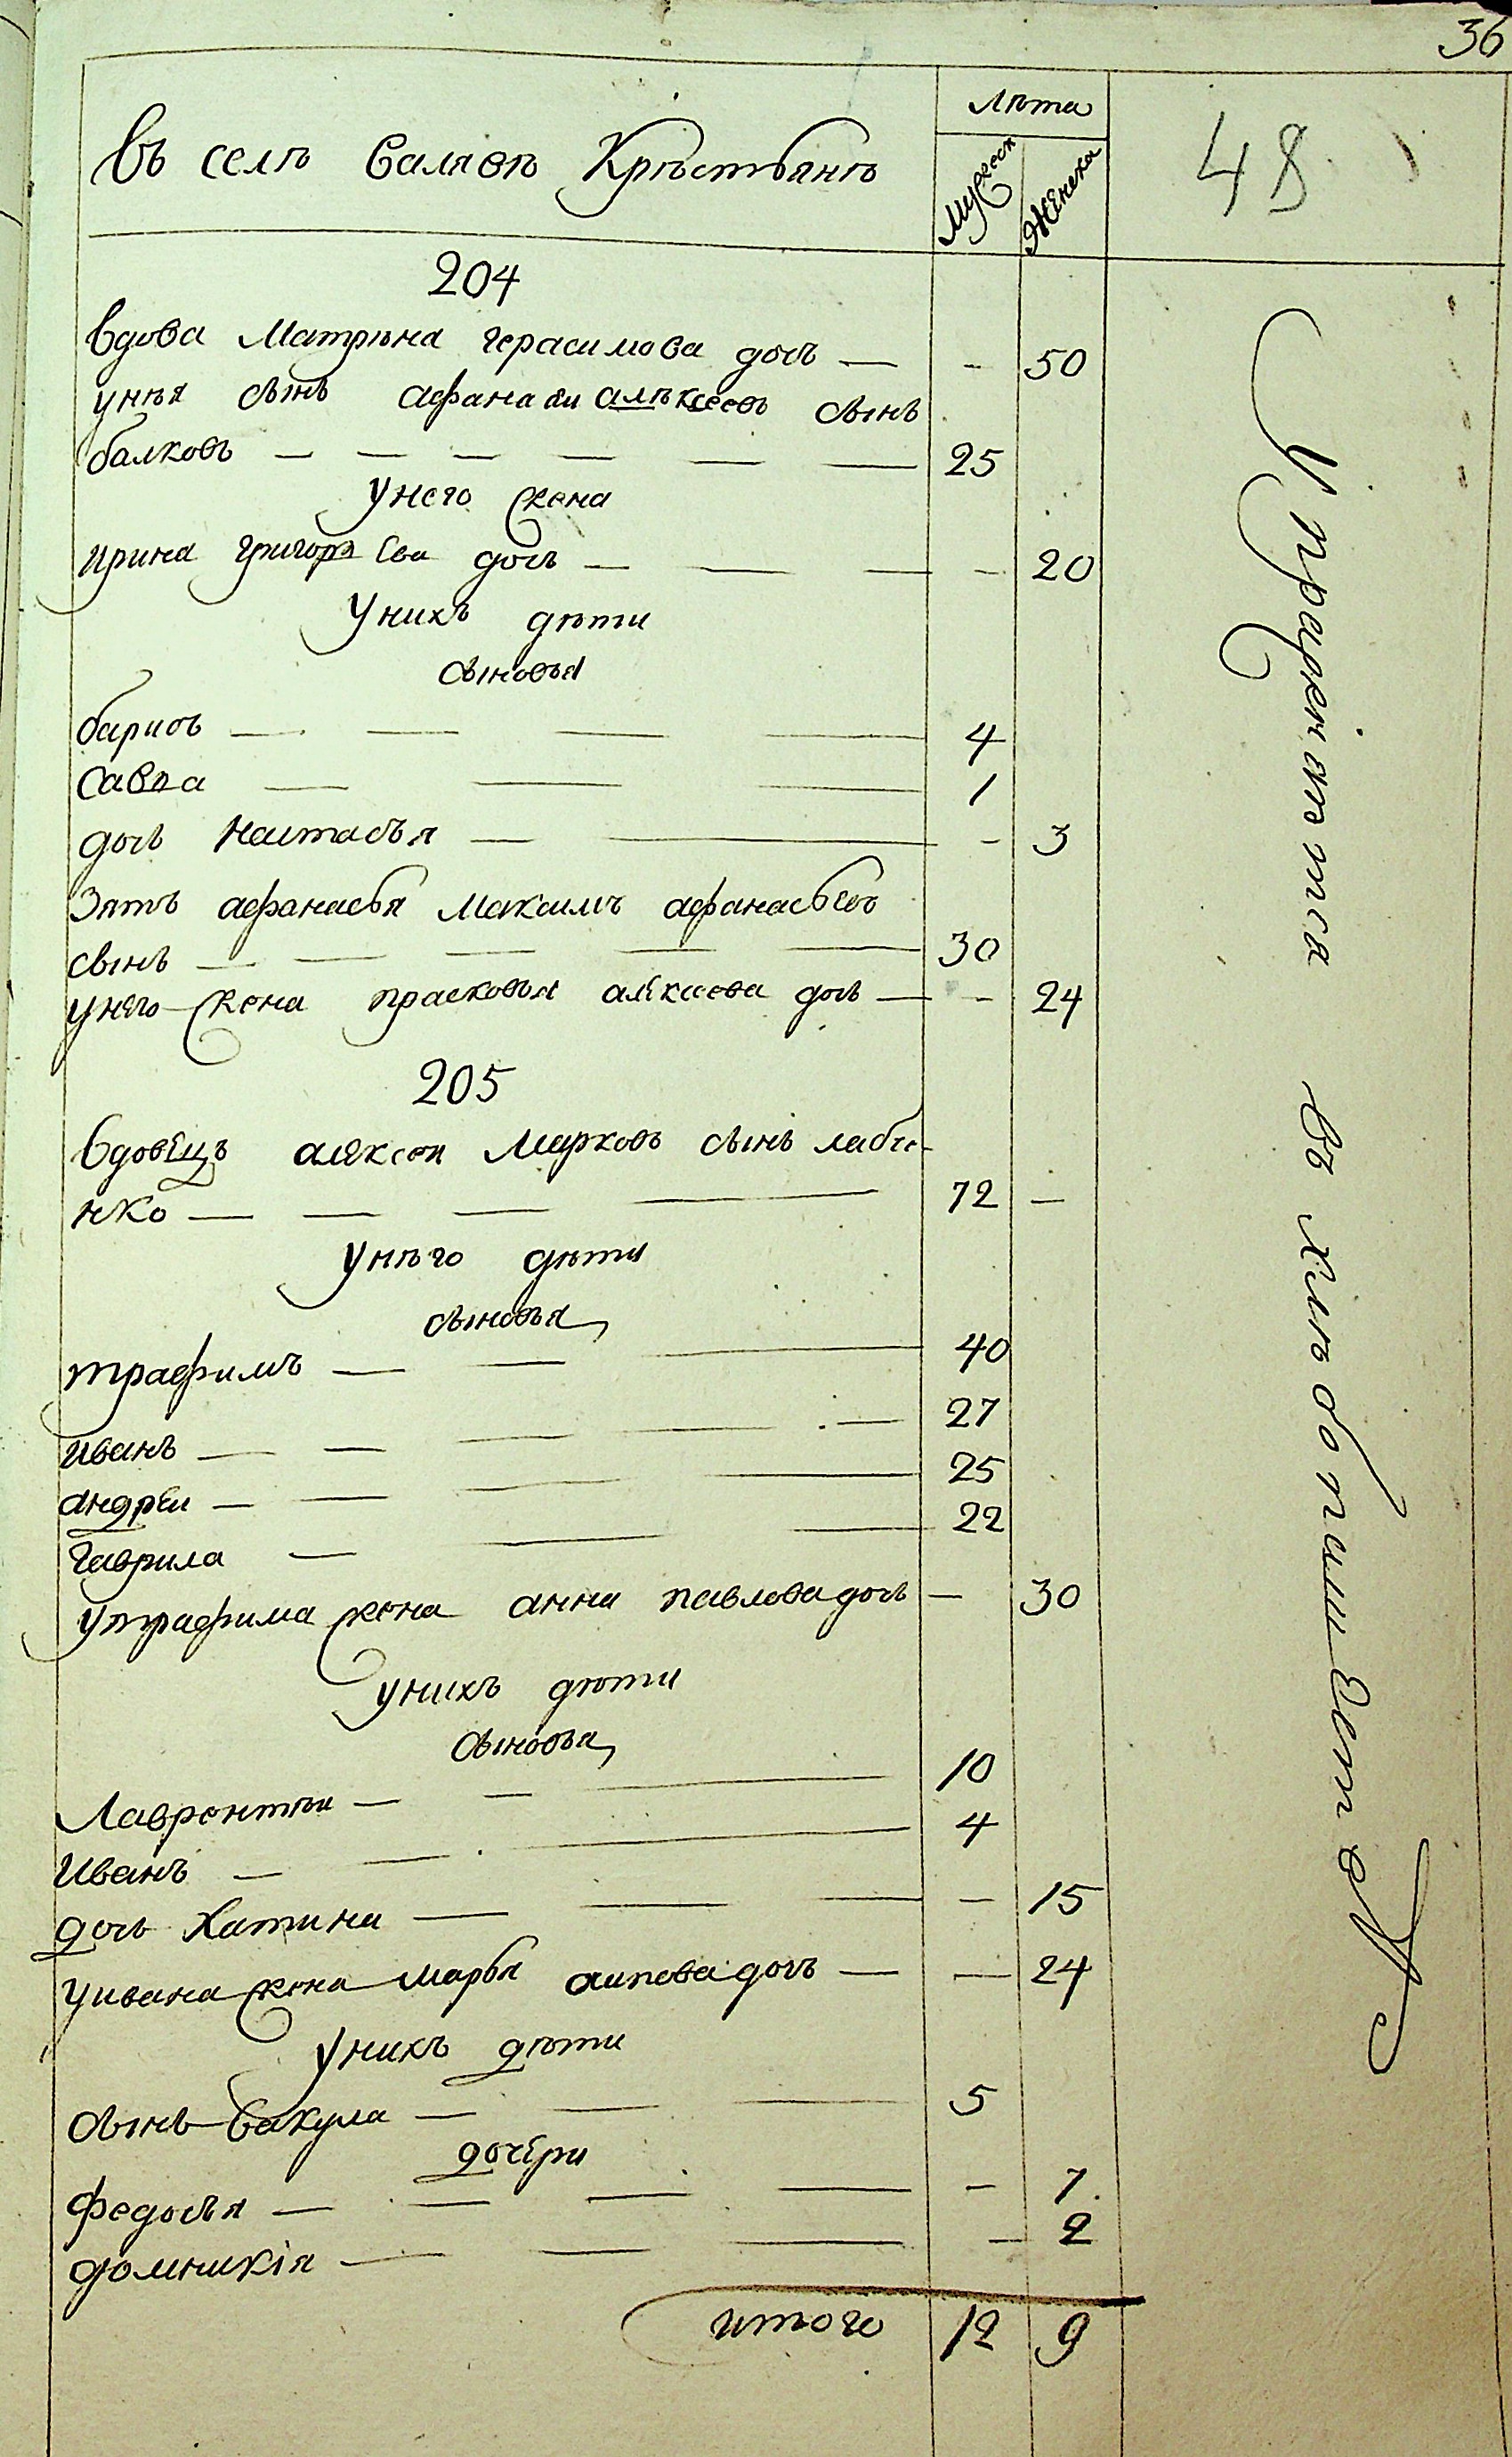 36
въ селѣ Салнѣвѣ Крѣстьянѣ
лѣта
Мужеск
Женска
48
204
вдова Матрѣна герасимова дочь — - 50
унѣя сынъ афанаси алѣксеевъ сынъ
балковъ — 25
унего жена
ирина григорьева дочь — - 20
унихъ дѣти
сыновья
барисъ — 4
Савва — 1
дочь настасья — - 3
Зять афанасья максимъ афанасьевъ
сынъ — 30
унего жена прасковья алексеева дочь — - 24
205
вдовецъ алексеи Марковъ сынъ лабче-
нко — 72 —
унѣго дѣти
сыновья
трафимъ — 40
иванъ — 27
андреи — 25
гаврила — 22
утрафима жена анна павлова дочь — 30
унихъ дѣти
сыновья
Лаврентѣи — 10
Иванъ — 4
дочь Катина — - 15
уивана жена марья дочь — — 24
унихъ дѣти
сынъ вакула — 5
дочери
федосья — - 7
домникія — - 2
итого 12 9
Упражняютса въ хлѣбопашестве